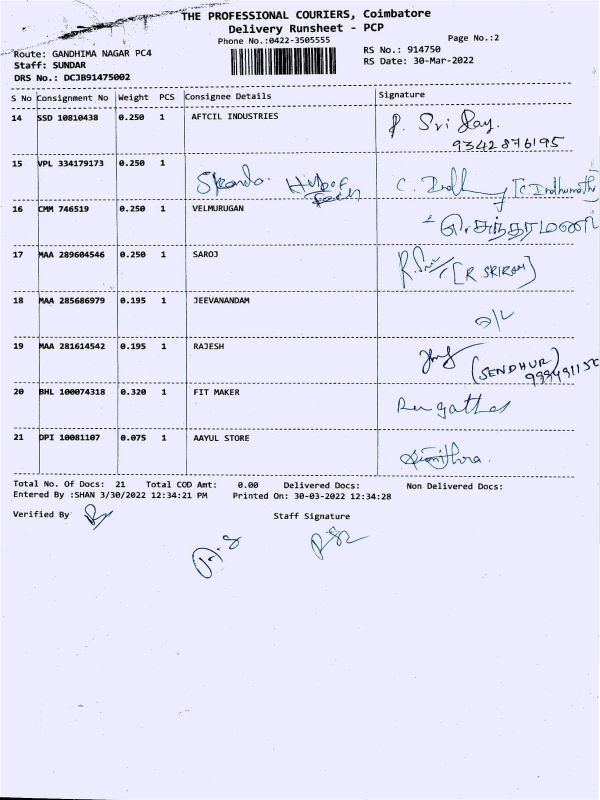 THE PROFESSIONAL COURIERS, Coimbatore
Delivery Runsheet - PCP
Phone No.:0422-3505555
Page No.:2
Route: GANDHIMA NAGAR PC4
RS No.: 914750
Staff: SUNDAR
RS Date: 30-Mar-2022
DRS No.: DCJB91475002
S No Consignment No Weight PCS Consignee Details Signature
14 SSD 10810438 0.250 1 AFTCIL INDUSTRIES P. Sri
9342876195
15 VPL 334179173 0.250 1
C. Indhumathy
16 CMM 746519 0.250 1 VELMURUGAN
17 MAA 289604546 0.250 1 SAROJ [R SRIRAM]
18 MAA 285686979 0.195 1 JEEVANANDAM
19 MAA 281614542 0.195 1 RAJESH (SENDHUR)
20 BHL 100074318 0.320 1 FIT MAKER
21 DPI 10081107 0.075 1 AAYUL STORE
Total No. Of Docs: 21 Total COD Amt: 0.00 Delivered Docs: Non Delivered Docs:
Entered By :SHAN 3/30/2022 12:34:21 PM Printed On: 30-03-2022 12:34:28
Verified By Staff Signature